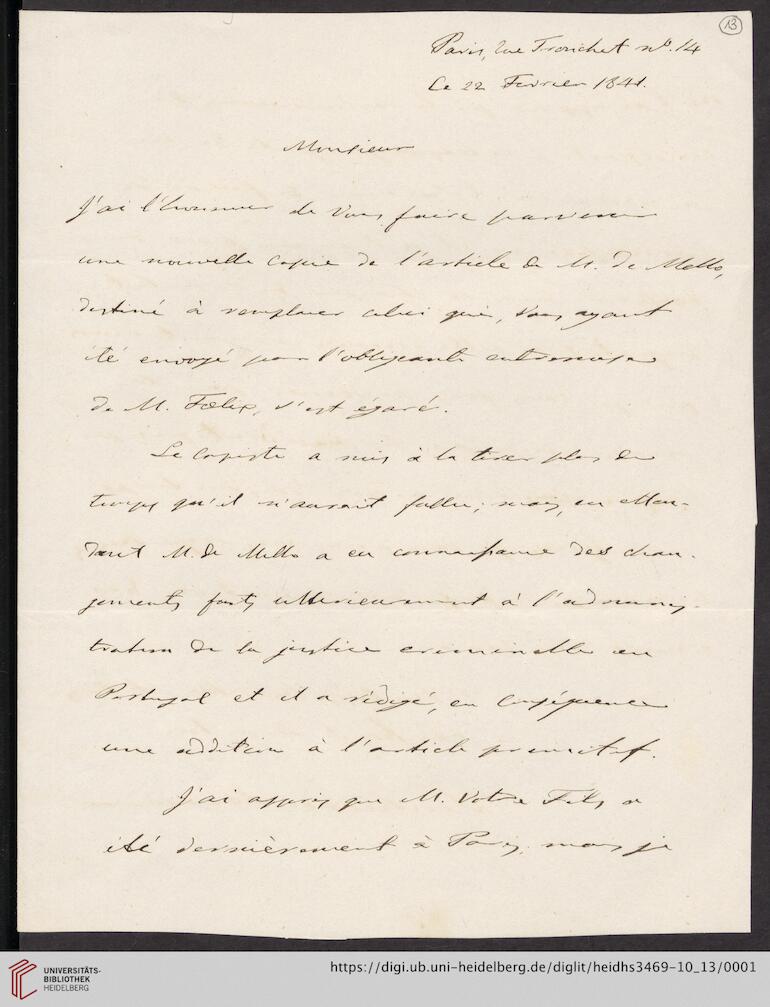 13
Paris, rue Tronchet nº. 14
Le 22 Fevrier 1841.
Monsieur
J'ai l'honneur de Vous faire parvenir
une nouvelle copie de l'article de M. de Mello,
destiné à remplacer celui qui, Vous ayant
été envoyé par l'obligeante entremise
de M. Fœlix, s'est égaré.
Le Copiste a mis à la tirer plus de
temps qu'il n'aurait fallu; mais, en atten-
dant M. de Mello a eu connaissance des chan-
gements faits ultérieurement à l'adminis-
tration de la justice criminelle en
Portugal et il a rédigé, en conséquence
une addition à l'article primitif.
J'ai appris que M. Votre Fils a
été dernièrement à Paris, mais je
UNIVERSITÄTS-
BIBLIOTHEK
HEIDELBERG
https://digi.ub.uni-heidelberg.de/diglit/heidhs3469-10_13/0001